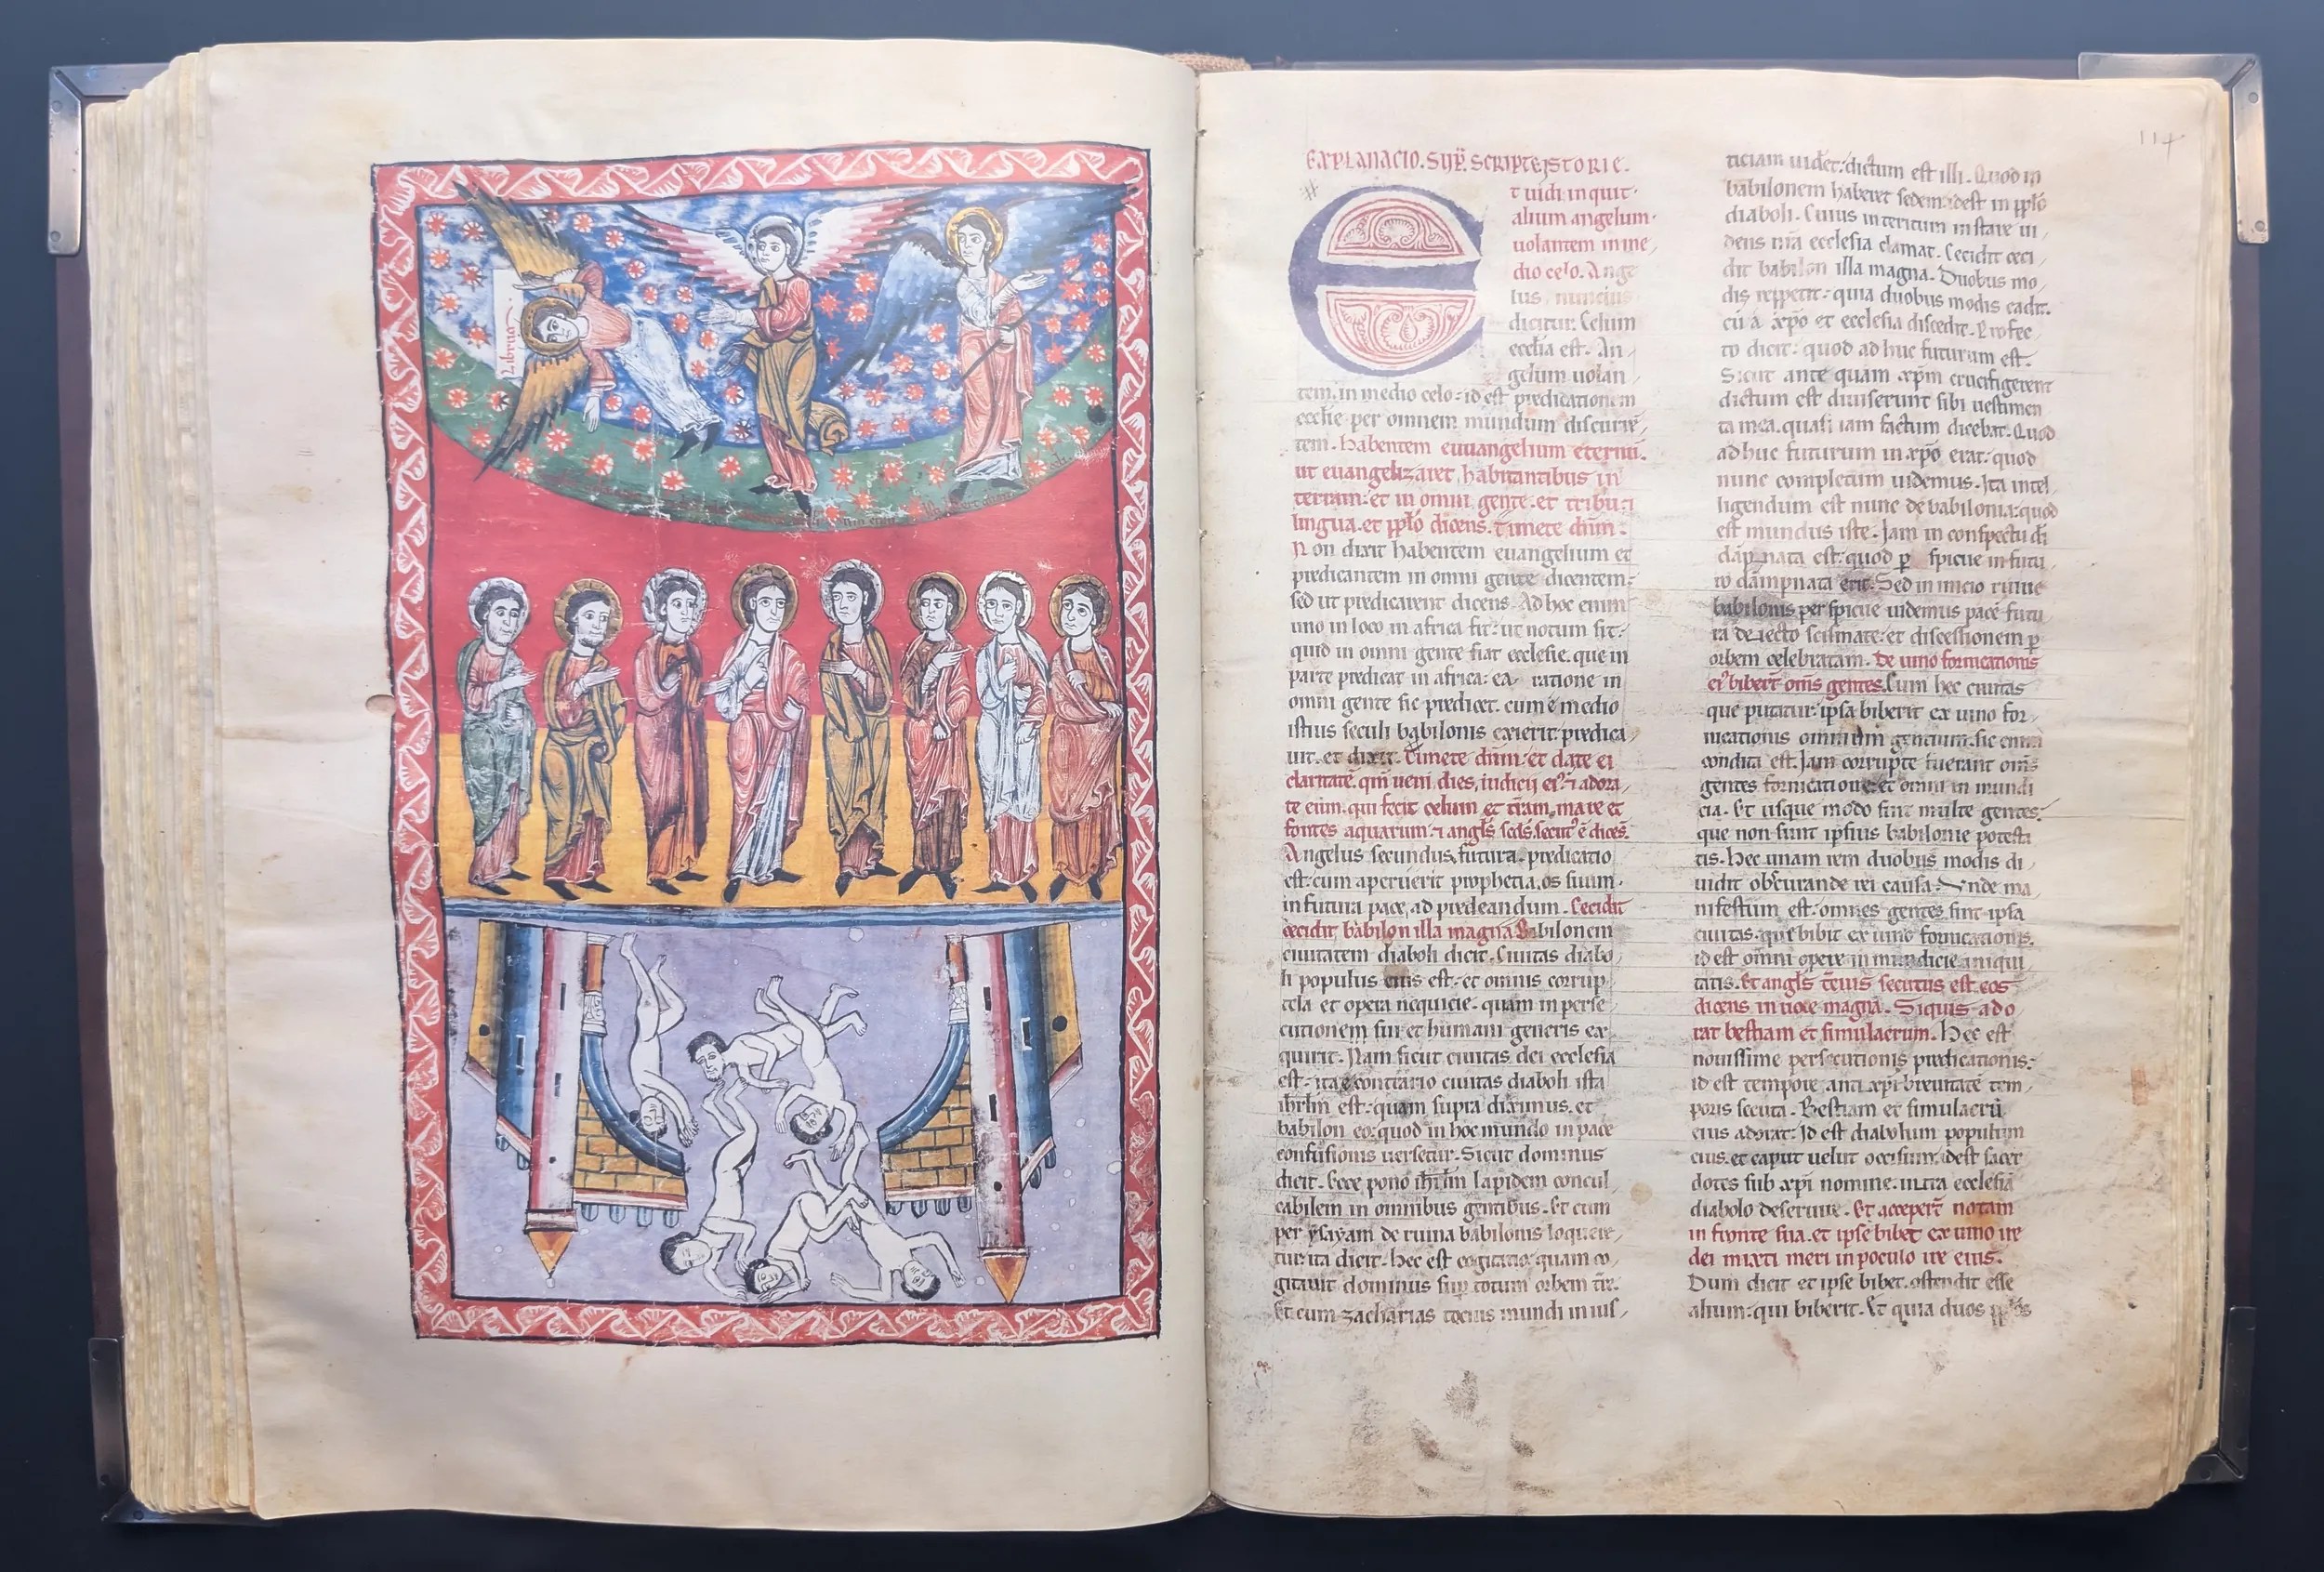 Librum
117
EXPLANACIO. SUP̄. SCRIPTE ISTORIE.
Et uidi inquit
alium angelum
uolantem in me
dio celo. Ange
lus nuncius
dicitur. Celum
ecclīa est. An
gelum uolan
tem. in medio celo: id est predicationem
ecclīe per omnem mundum discurrē
tem. habentem euuangelium eternū.
ut euangelizaret habitantibus in
terram: et in omni gente. et tribu: ⁊
lingua. et pplō dicens. Timete dnm̄:
Non dixit habentem euangelium et
predicantem in omni gente dicentem:
sed ut predicarent dicens. Ad hoc enim
uno in loco in africa fit: ut notum sit:
quid in omni gente fiat ecclesie. que in
parte predicat in africa: ea ratione in
omni gente sic predicet. cum e medio
istius seculi babilonis exierit: predica
uit. et dixit. Timete dnm̄: et date ei
claritatē. qm̄ ueni dies, iudicii ei⁹: ⁊ adora
te eum: qui fecit celum et trām, mare et
fontes aquarum: ⁊ angls̄ scds̄. secut⁹ ē dicēs.
Angelus secundus, futura predicatio
est: cum aperuerit prophetia, os suum.
in futura pace, ad predeandum. Cecidit
cecidit babilon illa magna. Babilonem
ciuitatem diaboli dicit. Ciuitas diabo
li populus eius est: et omnis corrup
tela et opera nequicie. quam in perse
cutionem sui et humani generis ex
quirit. Nam sicut ciuitas dei ecclesia
est: ita e contrario ciuitas diaboli ista
ihrlm̄ est: quam supra diximus. et
babilon eo: quod in hoc mundo in pace
confusionis uersetur. Sicut dominus
dicit. Ecce pono ihrlm̄ lapidem concul
cabilem in omnibus gentibus. Et cum
per ysayam de ruina babilonis loquere
tur: ita dicit. Hec est cogitatio: quam co
gitauit dominus sup̄ totum orbem tr̄e.
Et cum zacharias tocius mundi in ius
ticiam uidet: dictum est illi. Quod in
babilonem haberet sedem: idest in pplō
diaboli. Cuius interitum instare ui
dens nrā ecclesia clamat. Cecidit ceci
dit babilon illa magna. Duobus mo
dis reppetit: quia duobus modis cadit.
cū a xp̄o et ecclesia discedit. Profec
to dicit: quod ad huc futurum est.
Sicut ante quam xp̄m crucifigerent
dictum est diuiserunt sibi uestimen
ta mea. quasi iam factum dicebat. Quod
ad huc futurum in xp̄o erat: quod
nunc completum uidemus. Ita intel
ligendum est nunc de babilonia: quod
est mundus iste. Iam in conspectu dī
dāpnata est: quod p spicue in futu
ro dampnata erit. Sed in inicio ruine
babilonis perspicue uidemus pacē futu
ra deiecto scismate: et discessionem p
orbem celebratam. De uino fornicationis
ei⁹ bibert̄ om̄s gentes. Cum hec ciuitas
que putatur: ipsa biberit ex uino for
nicationis omnium gencium. sic enim
condita est. Iam corrupte fuerant om̄s
gentes fornicatione: et omni in mundi
cia. Et usque modo sunt multe gentes:
que non sunt ipsius babilonie potesta
tis. Hec unam rem duobus modis di
uidit obscurande rei causa. Unde ma
nifestum est: omnes gentes sint ipsa
ciuitas. que bibit ex uino fornicationis.
id est omni opere in mundicie iniqui
tatis. Et angls̄ t̄cius secutus est eos
dicens in uoce magna. Siquis ado
rat bestiam et simulacrum. Hec est
nouissime persecutionis predicationis:
id est tempore anti xp̄i breuitatē tem
poris secuta. Bestiam et simulacrū
eius adorat: Id est diabolum populum
eius. et caput uelut occisum, idest sacer
dotes sub xp̄i nomine. in ita ecclesia
diabolo deseruit. Et acceperit̄ notam
in fronte sua. et ipse bibet ex uino ire
dei mixti meri in poculo ire eius.
Dum dicit et ipse bibet. ostendit esse
alium: qui biberit. Et quia duos pplōs